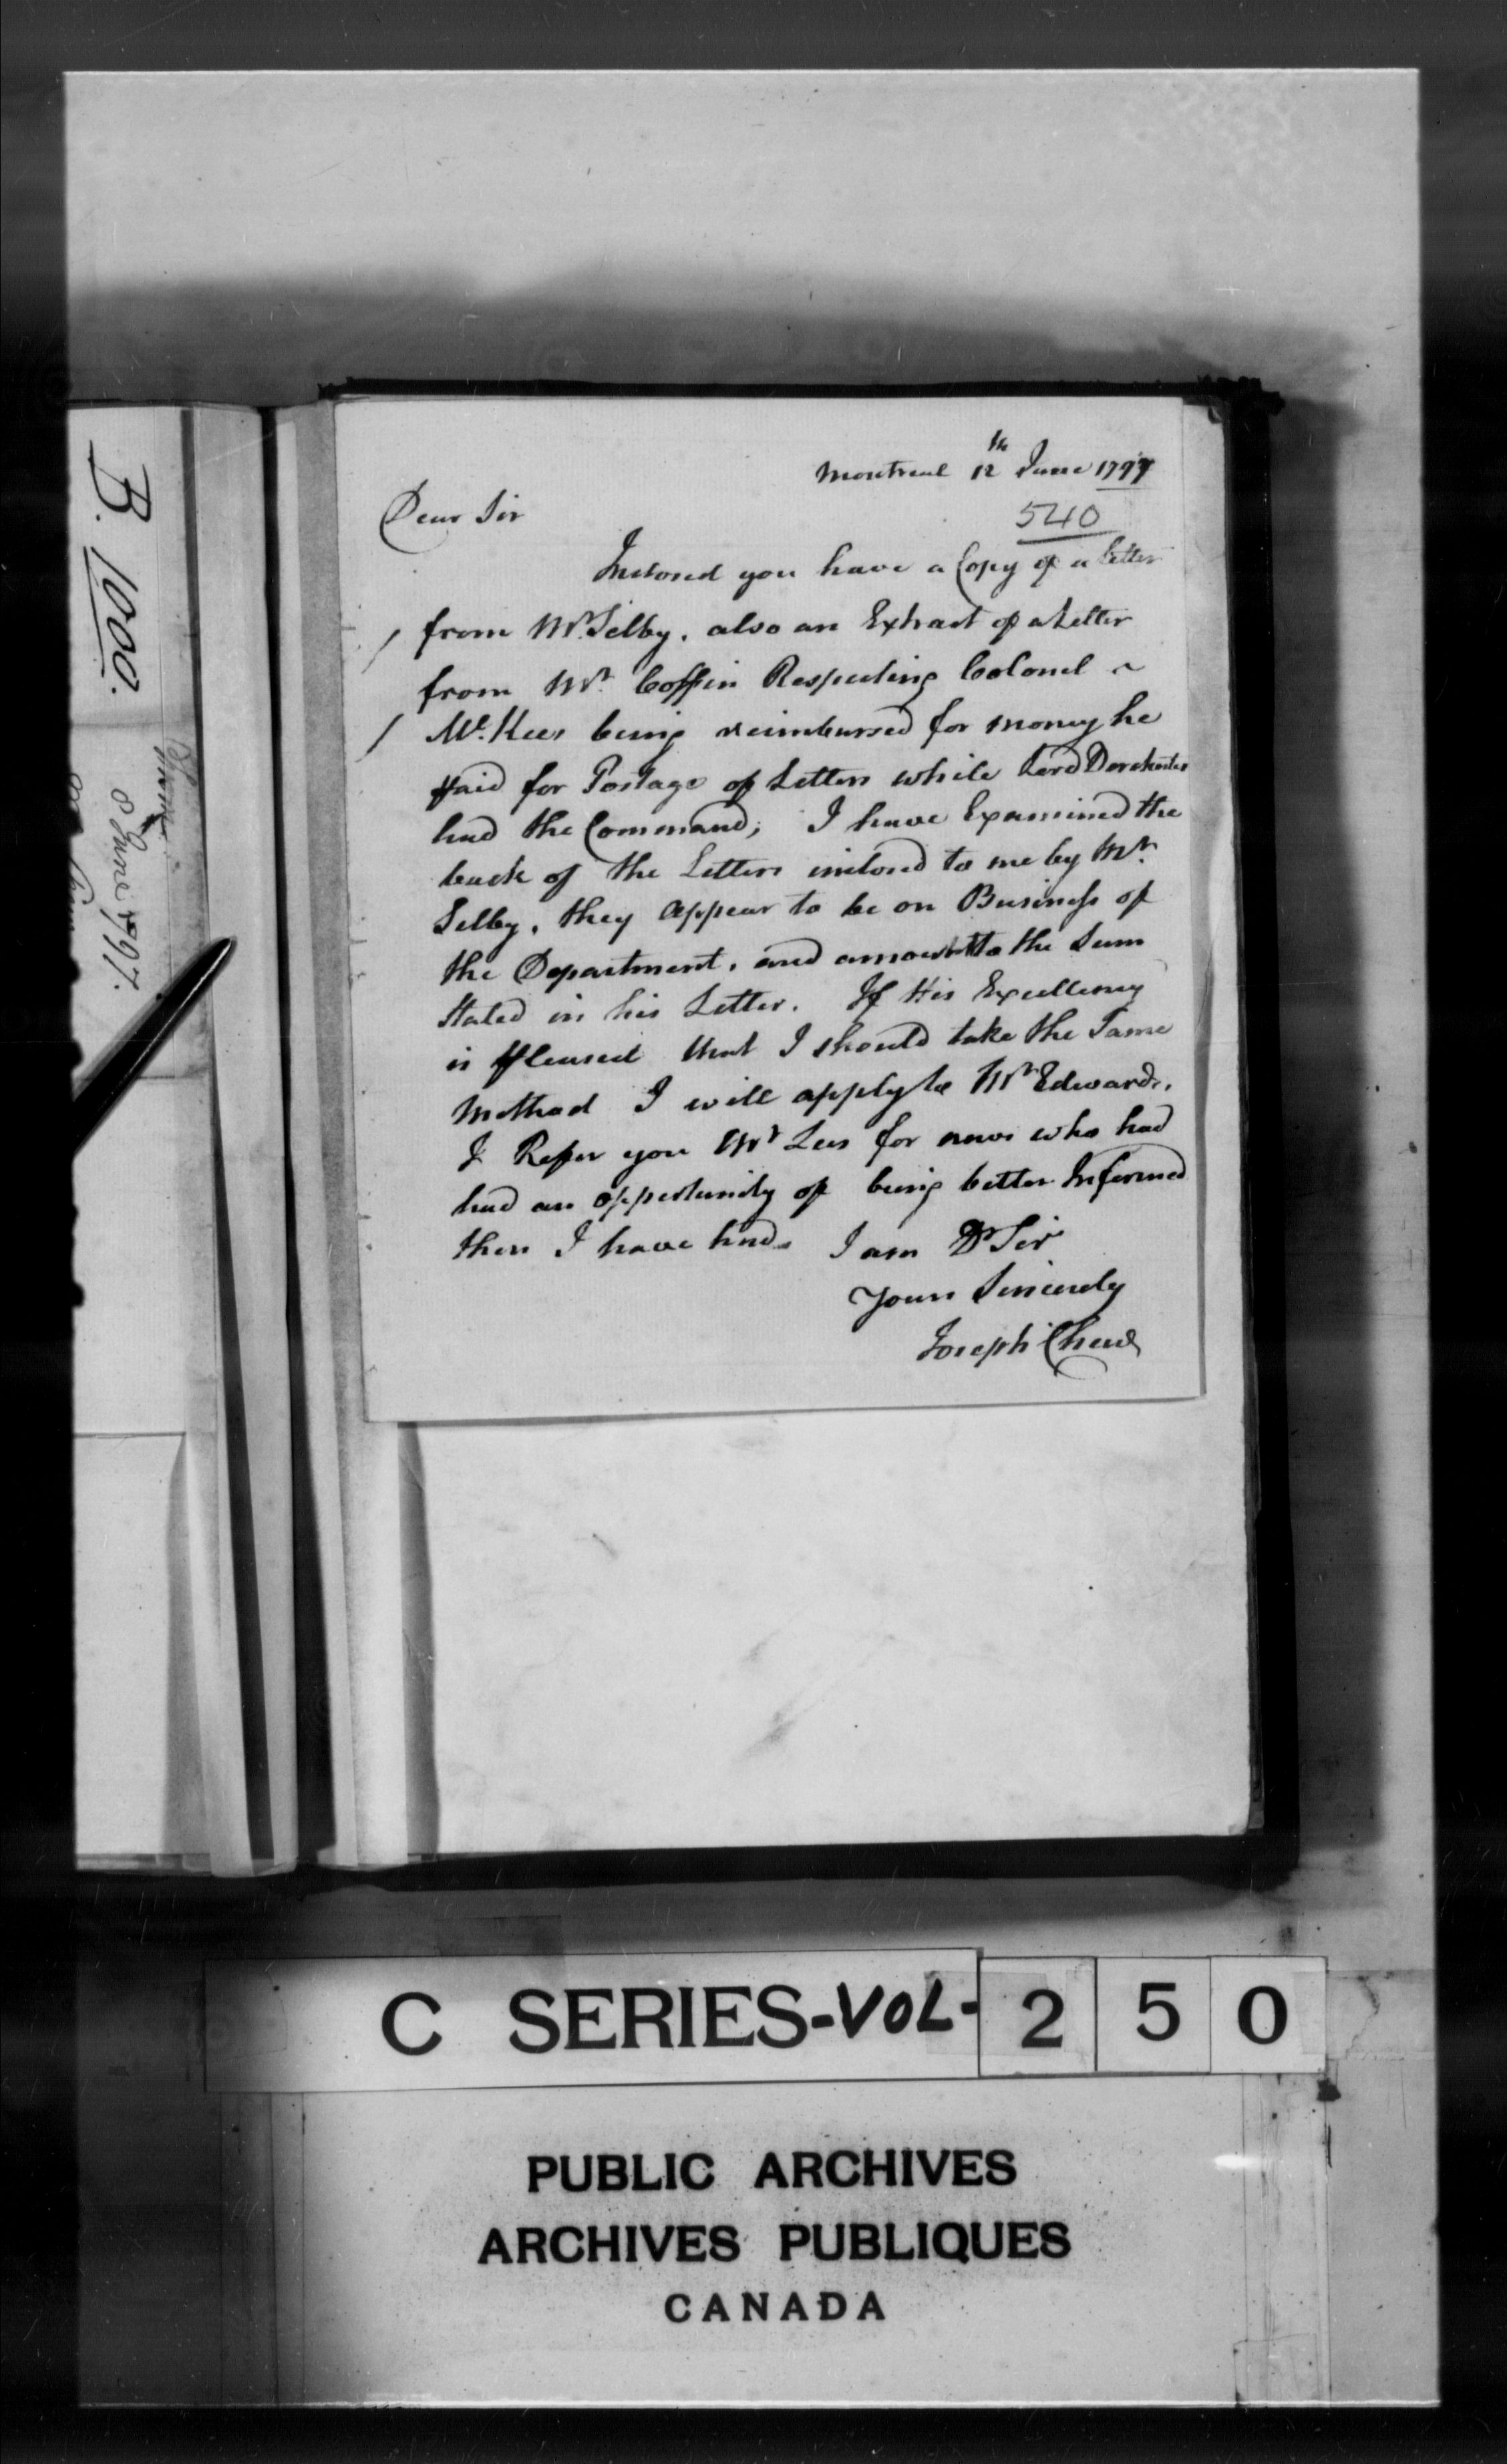 Montreal 12th June 1797
540
Dear Sir
Inclosed you have a Copy of a letter
from Mr. Selby, also an Extract of a Letter
from Mr. Coffin Respecting Colonel ~
McKees being reimbursed for money he
Paid for Postage of Letters while Lord Dorchester
had the Command; I have Examined the
back of the Letters inclosed to me by Mr.
Selby, they appear to be on Business of
the Department, and amount to the Sum
Stated in his Letter. If His Excellency
is Pleased that I should take the Same
Method I will apply to Mr Edwards.
I Refer you Mr Lees for news who had
had an oppertunity of being better Informed
then I have had. I am Dr Sir
Yours Sincerely
Joseph Chew
B. 1000.
8 June 1797.
C SERIES-VOL-250
PUBLIC ARCHIVES
ARCHIVES PUBLIQUES
CANADA